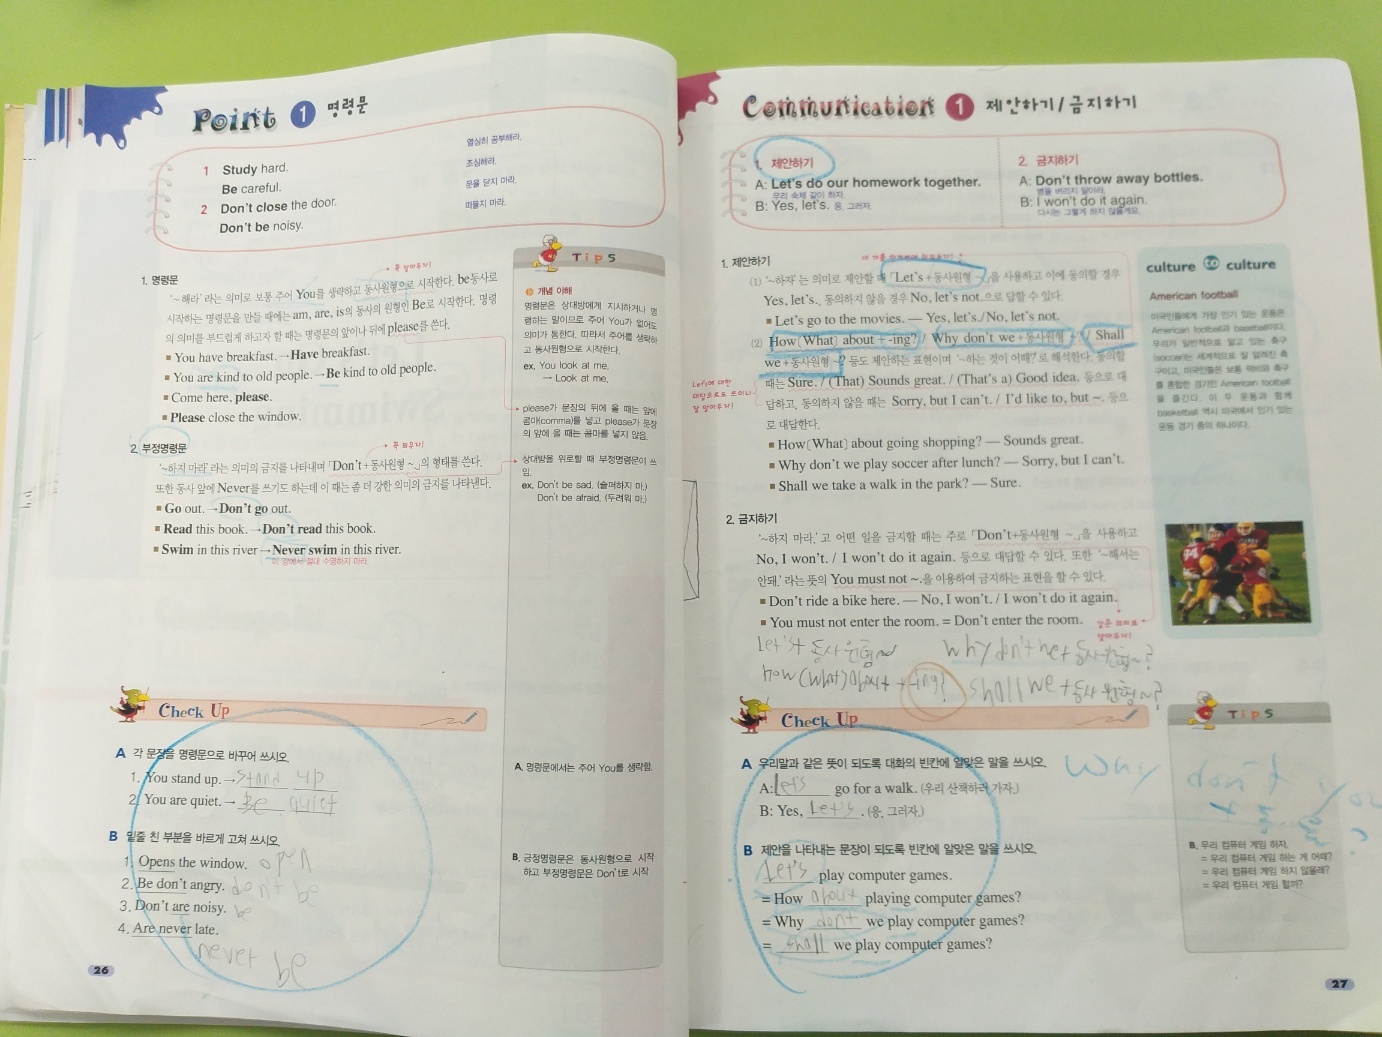 Point 1 명령문
1 Study hard. 열심히 공부해라.
Be careful. 조심해라.
2 Don't close the door. 문을 닫지 마라.
Don't be noisy. 떠들지 마라.
1. 명령문
꼭 알아두기!
'~해라'라는 의미로 보통 주어 You를 생략하고 동사원형으로 시작한다. be동사로
시작하는 명령문을 만들 때에는 am, are, is의 동사의 원형인 Be로 시작한다. 명령
의 의미를 부드럽게 하고자 할 때는 명령문의 앞이나 뒤에 please를 쓴다.
■ You have breakfast. → Have breakfast.
■ You are kind to old people. → Be kind to old people.
■ Come here, please.
■ Please close the window.
2. 부정명령문
꼭 외우기!
'~하지 마라'라는 의미의 금지를 나타내며 「Don't+동사원형 ~.」의 형태를 쓴다.
또한 동사 앞에 Never를 쓰기도 하는데 이 때는 좀 더 강한 의미의 금지를 나타낸다.
■ Go out. → Don't go out.
■ Read this book. → Don't read this book.
■ Swim in this river → Never swim in this river.
이 강에서 절대 수영하지 마라.
Tips
개념 이해
명령문은 상대방에게 지시하거나 명
령하는 말이므로 주어 You가 없어도
의미가 통한다. 따라서 주어를 생략하
고 동사원형으로 시작한다.
ex. You look at me.
→ Look at me.
please가 문장의 뒤에 올 때는 앞에
콤마(comma)를 넣고 please가 문장
의 앞에 올 때는 콤마를 넣지 않음.
상대방을 위로할 때 부정명령문이 쓰
임.
ex. Don't be sad. (슬퍼하지 마.)
Don't be afraid. (두려워 마.)
Check Up
A 각 문장을 명령문으로 바꾸어 쓰시오.
1. You stand up. → Stand up
2. You are quiet. → Be quiet
B 밑줄 친 부분을 바르게 고쳐 쓰시오.
1. Opens the window. open
2. Be don't angry. don't be
3. Don't are noisy. be
4. Are never late.
never be
A. 명령문에서는 주어 You를 생략함.
B. 긍정명령문은 동사원형으로 시작
하고 부정명령문은 Don't로 시작
26
Communication 1 제안하기/금지하기
1. 제안하기
A: Let's do our homework together.
우리 숙제 같이 하자.
B: Yes, let's. 응, 그러자.
2. 금지하기
A: Don't throw away bottles.
병을 버리지 말아라.
B: I won't do it again.
다시는 그렇게 하지 않을게요.
1. 제안하기
(1) '~하자'는 의미로 제안할 때 「Let's+동사원형 ~.」을 사용하고 이에 동의할 경우
Yes, let's., 동의하지 않을 경우 No, let's not.으로 답할 수 있다.
■ Let's go to the movies. — Yes, let's./ No, let's not.
(2) How〔What〕 about + -ing? / Why don't we+동사원형 ~? / Shall
we+동사원형 ~? 등도 제안하는 표현이며 '~하는 것이 어때?'로 해석한다. 동의할
때는 Sure. / (That) Sounds great. / (That's a) Good idea. 등으로 대
답하고, 동의하지 않을 때는 Sorry, but I can't. / I'd like to, but ~. 등으
로 대답한다.
Let's에 대한
대답으로도 쓰이니
잘 알아두기!
■ How〔What〕 about going shopping? — Sounds great.
■ Why don't we play soccer after lunch? — Sorry, but I can't.
■ Shall we take a walk in the park? — Sure.
2. 금지하기
'~하지 마라.'고 어떤 일을 금지할 때는 주로 「Don't+동사원형 ~.」을 사용하고
No, I won't. / I won't do it again. 등으로 대답할 수 있다. 또한 '~해서는
안돼.'라는 뜻의 You must not ~.을 이용하여 금지하는 표현을 할 수 있다.
■ Don't ride a bike here. — No, I won't. / I won't do it again.
■ You must not enter the room. = Don't enter the room.
같은 의미로
알아두기!
let's+동사원형~ why don't we+동사원형~?
how(what)about + -ing? shall we+동사원형~?
culture to culture
American football
미국인들에게 가장 인기 있는 운동은
American football과 baseball이다.
우리가 일반적으로 알고 있는 축구
(soccer)는 세계적으로 잘 알려진 축
구이고, 미국인들은 보통 럭비와 축구
를 혼합한 경기인 American football
을 즐긴다. 이 두 운동과 함께
basketball 역시 미국에서 인기 있는
운동 경기 중의 하나이다.
Check Up
A 우리말과 같은 뜻이 되도록 대화의 빈칸에 알맞은 말을 쓰시오.
A: Lets go for a walk. (우리 산책하러 가자.)
B: Yes, let's. (응, 그러자.)
B 제안을 나타내는 문장이 되도록 빈칸에 알맞은 말을 쓰시오.
Let's play computer games.
= How about playing computer games?
= Why don't we play computer games?
= shall we play computer games?
Tips
Why don't you
B. 우리 컴퓨터 게임 하자.
= 우리 컴퓨터 게임 하는 게 어때?
= 우리 컴퓨터 게임 하지 않을래?
= 우리 컴퓨터 게임 할까?
27